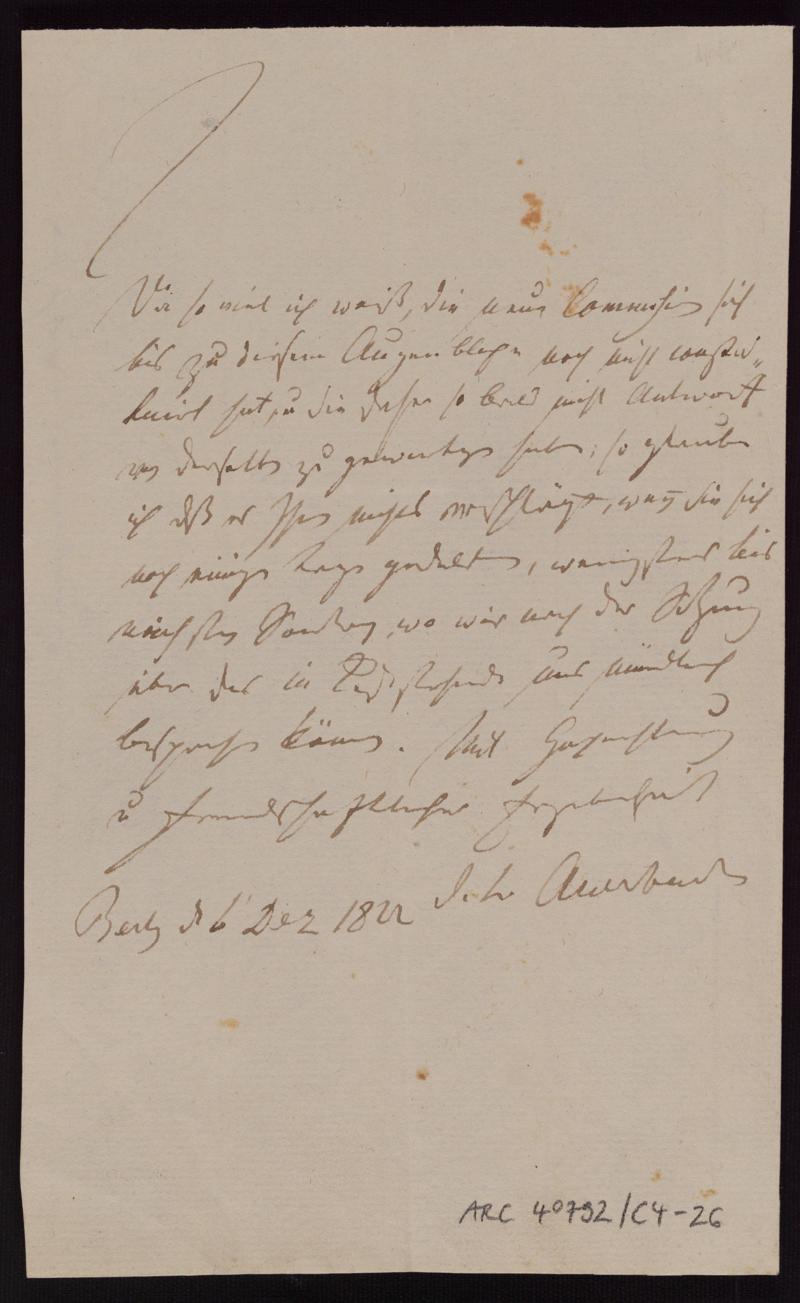 Da so viel ich weiß, die neue Commission sich
bis zu diesem Augenblicke noch nicht consti„
tuirt hat, u Sie daher so bald nicht Antwort
von derselben zu gewärtigen haben; so glaube
ich daß es Ihnen nichts verschlägt, wenn Sie sich
noch einige Tage gedulden, wenigstens bis
nächsten Sonntag, wo wir nach der Sitzung
über das in Rede stehende uns mündlich
besprechen können. Mit Hochachtung
u freundschaftlicher Ergebenheit
Auerbach
Berlin d 6 Dez 1822
ARC 40792/C4-26